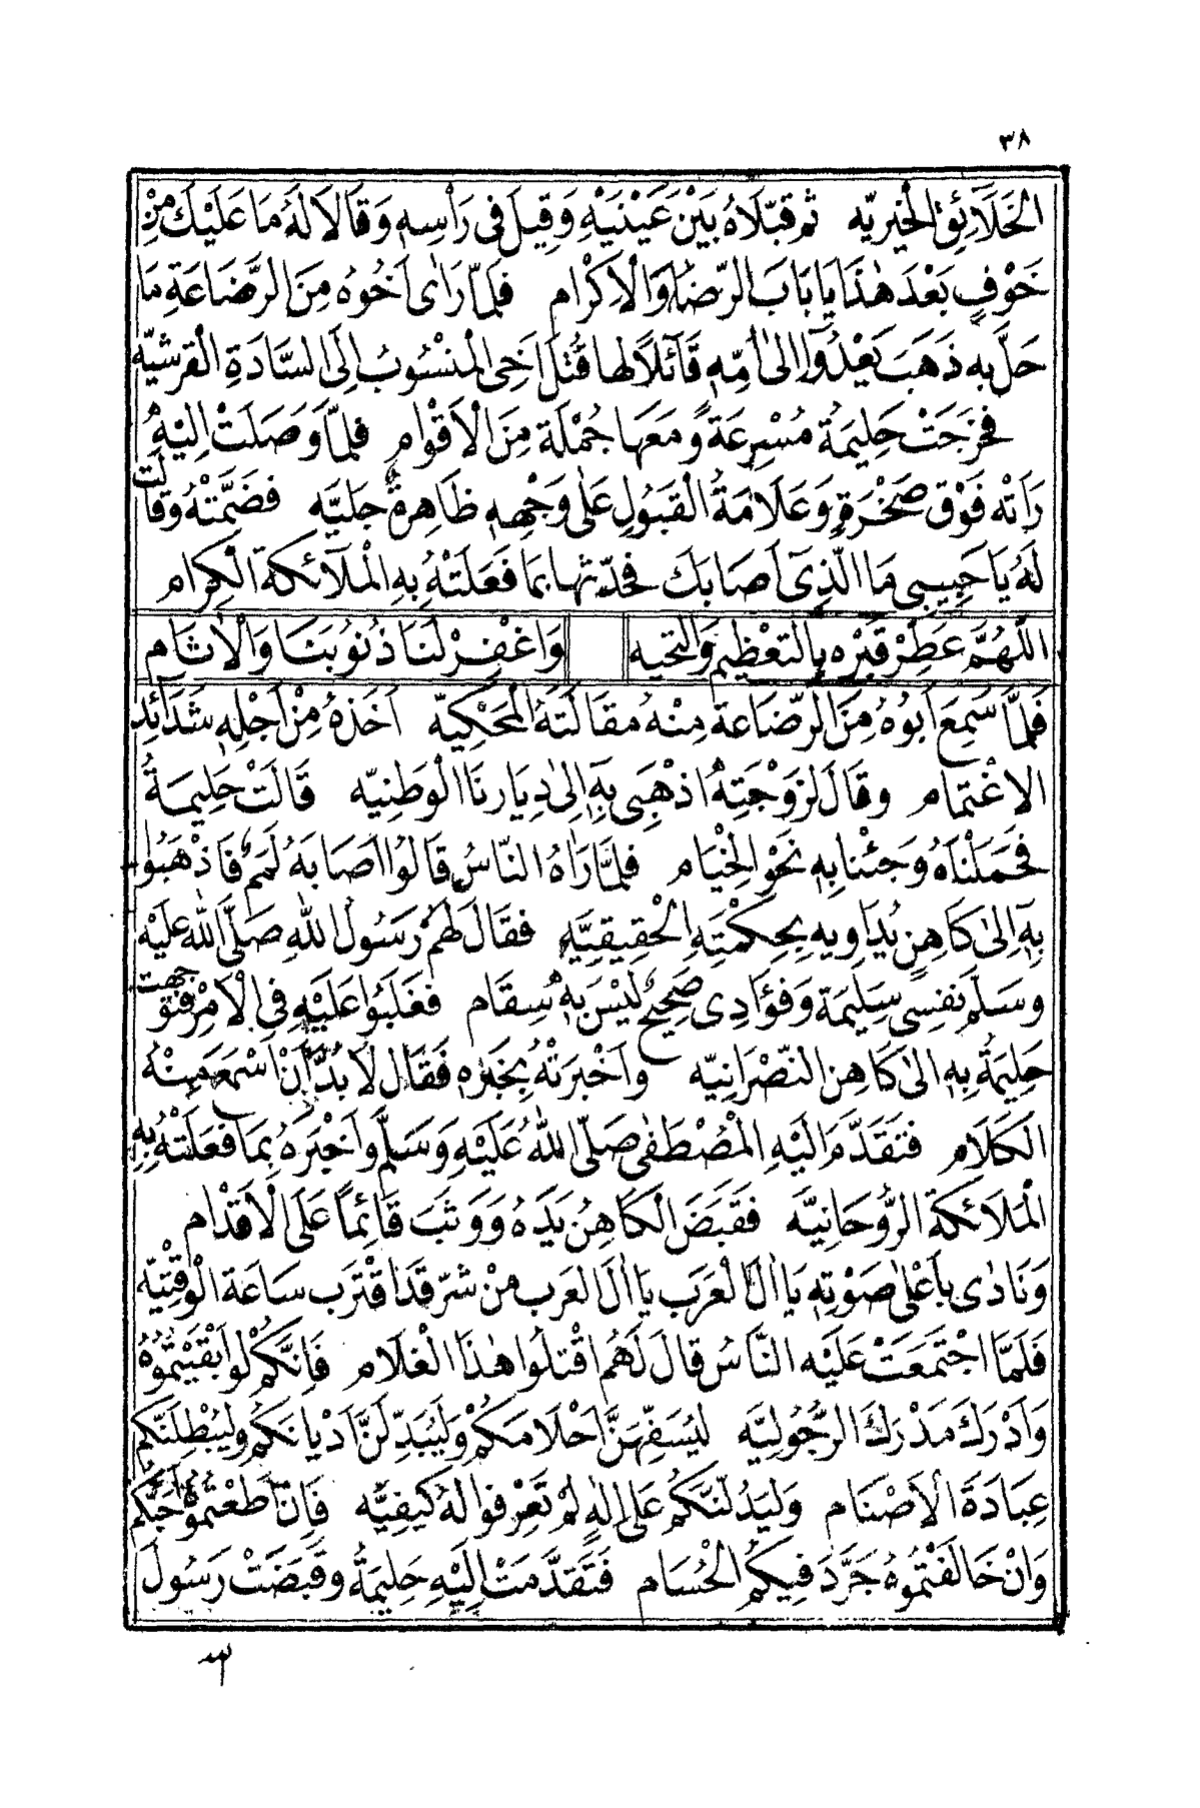 ٣٨
الخَلَائِقِ الْخَيْرِيَّه ثم قَبَّلَاهُ بَيْنَ عَيْنَيْهِ وَقِيلَ فِى رَأْسِهِ وَقَالَا لَهُ مَا عَلَيْكَ مِنْ
خَوْفٍ بَعْدَ هٰذَا يَا بَابَ الرِّضَا وَالْاِكْرَام فَلَمَّا رَاٰى اَخُوهُ مِنَ الرَّضَاعَةِ مَا
حَلَّ بِهِ ذَهَبَ يَعْدُوا اِلٰى اُمِّهِ قَآئلًا لها قُتِلَ اَخِى الْمَنْسُوبُ اِلَى السَّادَةِ الْقُرَشِيَّه
فَخَرَجَتْ حَلِيمَةُ مُسْرِعَةً وَمَعَهَا جُمْلَة مِنَ الْاَقْوَامِ فلمَّا وَصَلَتْ اِلَيْهِ
رَاَتْه فَوْقَ صَخْرَةٍ وَعَلَامَةُ الْقَبُولِ عَلٰى وَجْهِهِ ظَاهِرَةٌ جَلِيَّه فَضَمَّتْهُ وَقَالَت
لَهُ يَا حَبِيبِى مَا الَّذِىٓ اَصَابَكَ فَحَدَّثَهَا بِمَا فَعَلَتْهُ بِهِ الْمَلَآئكَة الْكِرَام
اَللّٰهُمَّ عَطِّرْ قَبْرَه بِالتَّعْظِيمِ وَالتَّحِيَّه وَاغْفِرْ لَنَا ذُنُوبَنَا وَالْاٰثَام
فَلَمَّا سَمِعَ اَبُوهُ مِنَ الرَّضَاعَة مِنْهُ مَقَالَتَهُ الْمَحْكِيَّه اَخَذَهُ مِنْ اَجْلِهِ شَدَآئِد
الِاغْتِمَام وَقَالَ لِزَوْجَتِهِ اذْهَبِى بِهِ اِلٰى دِيَارِنَا الْوَطَنِيَّه قَالَتْ حَلِيمَةُ
فَحَمَلْنَاهُ وَجِئْنَا بِهِ نَحْوَ الْخِيَام فلمَّا رَاٰهُ النَّاسُ قَالُوا اَصَابَهُ لَمَمٌ فَاذْهَبُوا
بِهِ اِلٰى كَاهِنٍ يُدَاوِيهِ بِحِكْمَتِهِ الْحَقِيقِيَّه فقَالَ لَهُمْ رَسُولُ اللهِ صَلَّى اللهُ عَلَيْه
وَسَلَّم نَفْسِى سَلِيمَة وَفُؤَادِى صَحِيحٌ لَيْسَ بِهِ سِقَام فَغَلَبُوا عَلَيْهِ فِى الْاَمْرِ فَتَوَجَّهَت
حَلِيمَةُ بِهِ اِلٰى كَاهِنِ النَّصْرَانِيَّه وَاَخْبَرَتْهُ بِخَبَرِه فَقَالَ لَا بُدَّ اَنْ اَسْمَعَ مِنْهُ
الْكَلَام فَتَقَدَّمَ اِلَيْهِ الْمُصْطَفٰى صَلَّى اللهُ عَلَيْهِ وَسَلَّمَ وَاَخْبَرَهُ بِمَا فَعَلَتْهُ بِهِ
الْمَلَائكَة الرُّوحَانِيَّه فَقَبَضَ الْكَاهِنُ يَدَهُ وَوَثَبَ قَائِمًا عَلَى الْاَقْدَام
وَنَادٰى بِاَعْلٰى صَوْتِهِ يَا اٰلَ الْعَرَب يَا اٰلَ الْعَرَب مِنْ شَرٍّ قَد اقْتَرَب سَاعَة الْوَقْتِيَّه
فَلَمَّا اجْتَمَعَتْ عَلَيْهِ النَّاسُ قَالَ لَهُمُ اقْتُلُوا هٰذَا الْغُلَام فَاِنَّكُم لَوْ اَبْقَيْتُمُوهُ
وَاَدْرَكَ مَدْرَكَ الرُّجُولِيَّه لَيُسَفِّهَنَّ اَحْلَامَكُمْ وَلَيُبَدِّلَنَّ اَدْيَانَكُم وَلَيُبْطِلَنَّكُم
عِبَادَةَ الْاَصْنَام وَلَيَدُلَّنَّكُم عَلٰى اِلٰهٍ لَمْ تَعْرِفُوا لَهُ كَيْفِيَّه فَاِنْ اَطَعْتُمُوهُ اَحَبَّكُم
وَاِنْ خَالَفْتُمُوهُ جَرَّدَ فِيكُمُ الْحُسَام فَتَقَدَّمَتْ اِلَيْهِ حَلِيمَةُ وَقَبَضَتْ رَسُولَ